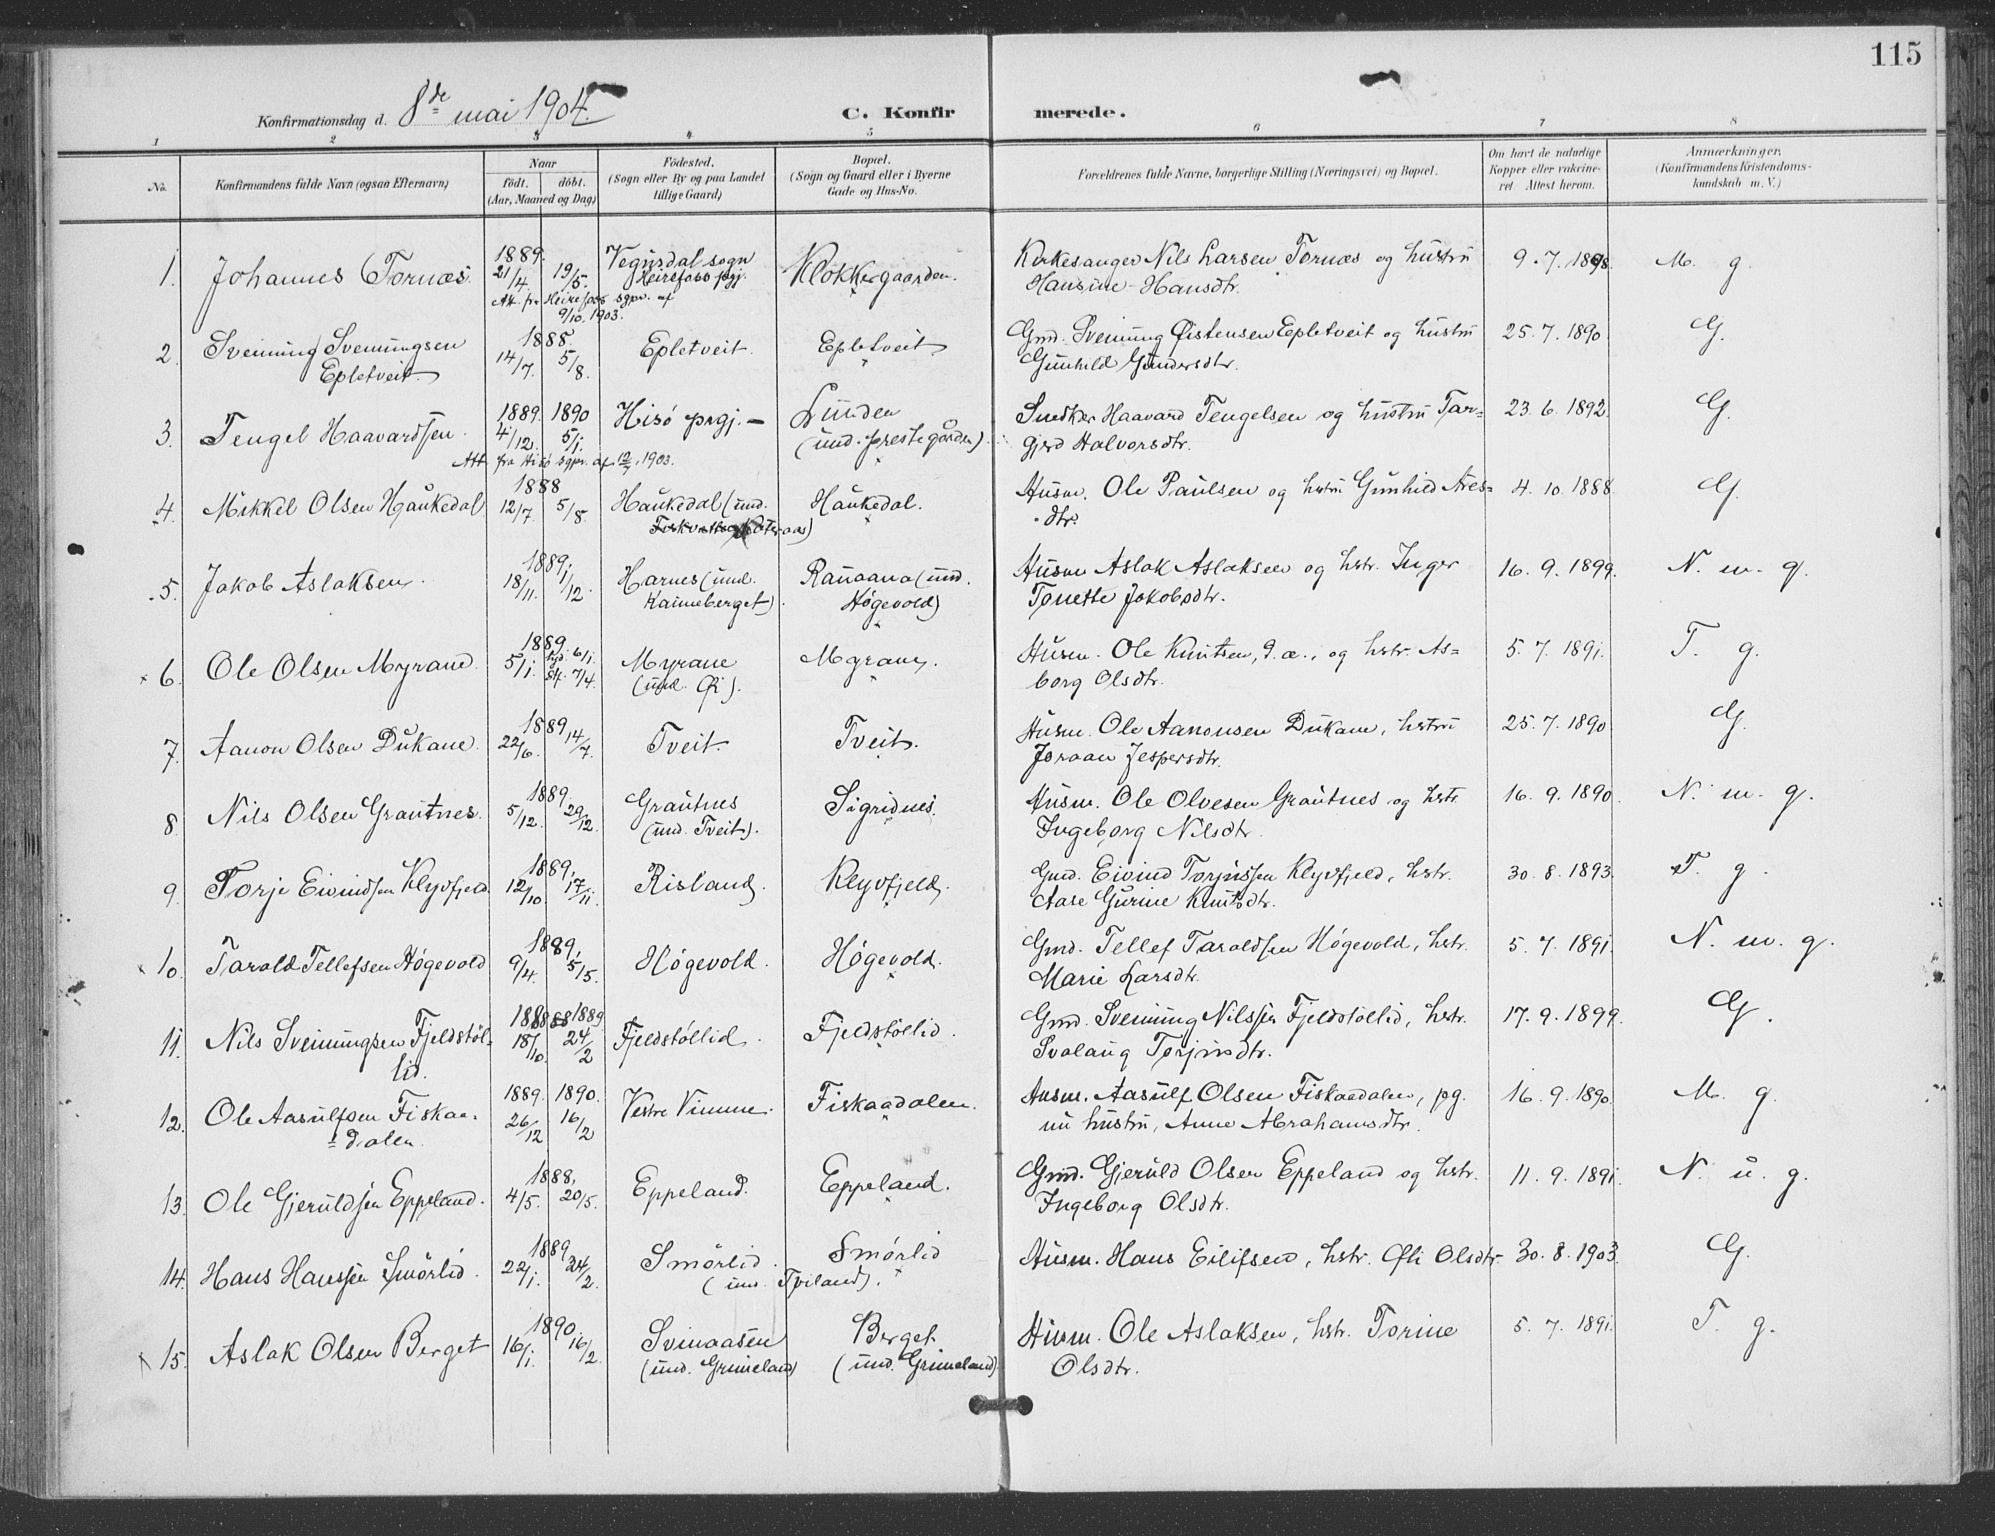 115
Konfirmationsdag d. 8de mai 1904. C. Konfirmerede.
1 2 3 4 5 6 7 8
No. Konfirmandens fulde Navn (ogsaa Efternavn) Naar født. døbt. (Aar, Maaned og Dag) Fødested. (Sogn eller By og paa Landet tillige Gaard) Bopæl. (Sogn og Gaard eller i Byerne Gade og Hus-No. Forældrenes fulde Navne, borgerlige Stilling (Næringsvei) og Bopæl. Om havt de naturlige Kopper eller vaccineret. Attest herom. Anmærkninger. (Konfirmandens Kristendomskundskab m. V.)
1. Johannes Tornæs 1889. 21/4. 19/5. Vegusdal sogn Heirefoss pgj. Klokkergaarden. Kirkesanger Nils Larsen Tornæs og hustru Hansine Hansdtr. 9.7.1898. M. g.
Att. fra Heirefoss sgpr. af 9/10 1903.
2. Svenning Svenningsen Epletveit. 1888. 14/7. 5/8. Epletveit. Epletveit Gmd. Svenning Øistensen Epletveit og hustru Gunhild Gundersdtr. 25.7.1890 G.
3. Tengel Haavardsen. 1889. 1890 4/12. 5/1. Hisö prgj. — Lunden (und. prestegården). Snedker Haavard Tengelsen og hustru Targjerd Halvorsdtr. 23.6.1892. G.
Att. fra Hisö sgpr. af 1903.
4. Mikkel Olsen Haukedal 1888 12/7. 5/8. Haukedal (und. Haukedal. Husm. Ole Paulsen og hstru Gunhild Aresdtr. 4.10.1888. G.
5. Jakob Aslaksen. 1889. 18/11. 1/12. Harnes (und. Kaineberget). Ranaana (und. Høgevold) Husm Aslak Aslaksen og hstr. Inger Tonette Jakobsdtr. 16.9.1899. N. m. g.
6. Ole Olsen Myrane. 1889. 5/1. hjd. 6/1. St. 7/4. Myrane (und. Øi). Myrane. Husm. Ole Knutsen, d.æ., og hstr. Asborg Olsdtr. 5.7.1891. T. g.
7. Aanon Olsen Dukane. 1889 22/6. 14/7. Tveit. Tveit. Husm. Ole Aanonsen Dukane, hstru Joraan Jespersdtr. 25.7.1890 G.
8. Nils Olsen Grautnes. 1889 5/12. 29/12. Grautnes (und. Tveit). Sigridnes. Husm. Ole Olvesen Grautnes og hstr Ingeborg Nilsdtr. 16.9.1890. N. m. g.
9. Torje Eivindsen Klyvfjeld 1889, 12/10. 17/11. Risland. Klyvfjeld. Gmd. Eivind Torjussen Klyvfjeld, hstr. Aase Gurine Knutsdtr. 30.8.1893. T. g.
10. Tarald Tellefsen Høgevold 1889, 9/4. 5/5. Høgevold. Høgevold. Gmd. Tellef Taraldsen Høgevold, hstr. Marie Larsdtr. 5.7.1891. N. m. g.
11. Nils Svenningsen Fjeldstøllid. 1888 1889. 18/10. 24/2 Fjeldstøllid. Fjeldstøllid. Gmd. Svenning Nilssen Fjeldstøllid, hstr. Svalaug Torjusdtr. 17.9.1899. G.
12. Ole Aasulfsen Fiskaadalen. 1889. 1890. 26/12 16/2 Vestre Vimme. Fiskaadalen. Husm. Aasulf Olsen Fiskaadalen, pg. nu hustru, Anne Abrahamsdtr. 16.9.1890. M. g.
13. Ole Gjeruldsen Eppeland. 1888, 4/5. 20/5. Eppeland. Eppeland. Gmd. Gjeruld Olsen Eppeland og hstr. Ingeborg Olsdtr. 11.9.1891. N. u. g.
14. Hans Hanssen Smørlid. 1889 22/1. 24/2. Smørlid. (und. Tviland). Smørlid Husm. Hans Eilifsen, hstr. Øli Olsdtr. 30.8.1903. G.
15. Aslak Olsen Berget 1890, 16/1. 16/2. Svinaasen (und. Grimeland) Berget. (und. Grimeland) Husm. Ole Aslaksen, hstr. Torine Olsdtr. 5.7.1891. T. g.